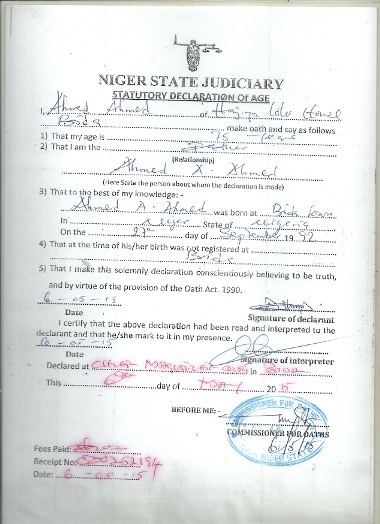 NIGER STATE JUDICIARY
STATUTORY DECLARATION OF AGE
I, Ahmed Ahmed of
Bida make oath and say as follows
1) That my age is 75 years
2) That I am the Father
(Relationship)
Ahmed A. Ahmed
(Here State the person about whom the declaration is made)
3) That to the best of my knowledge: -
Ahmed A. Ahmed was born at Bida Town
In Niger State of Nigeria
On the 27th day of September 1992
4) That at the time of his/her birth was not registered at
Bida
5) That I make this solemnly declaration conscientiously believing to be truth,
and by virtue of the provision of the Oath Act. 1990.
6-05-15
Date Signature of declarant
I certify that the above declaration had been read and interpreted to the
declarant and that he/she mark to it in my presence.
6-05-15
Date Signature of interpreter
Declared at in Bida
This day of May 2015
BEFORE ME: -
COMMISSIONER FOR OATHS
6/5/15
NIGER STATE
Fees Paid:
Receipt No:
Date: 6-05-15